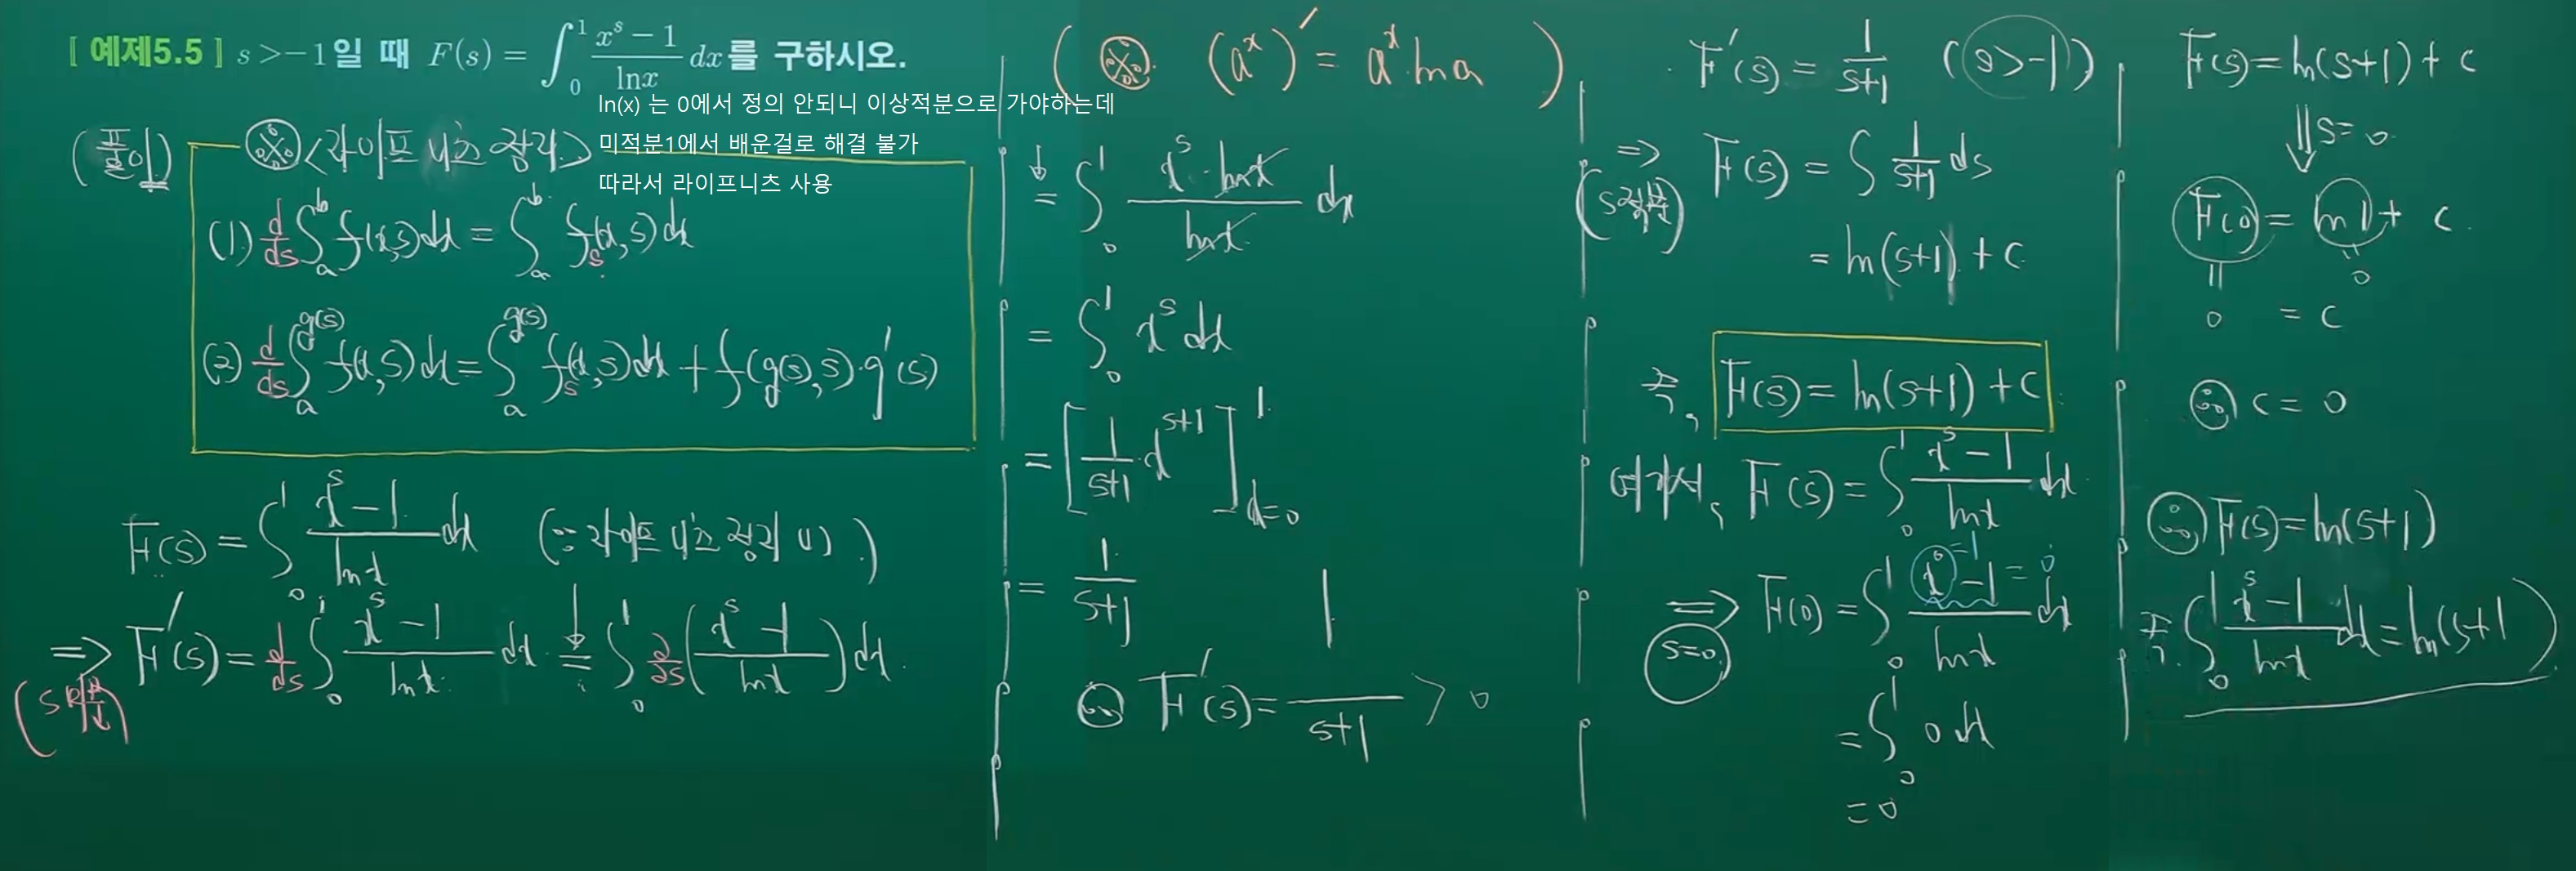 [ 예제5.5 ] s > -1일 때 F(s) = ∫₀¹ (x^s - 1)/(lnx) dx를 구하시오.
ln(x) 는 0에서 정의 안되니 이상적분으로 가야하는데
미적분1에서 배운걸로 해결 불가
따라서 라이프니츠 사용
(풀이) ※ <라이프니츠 정리>
(1) d/ds ∫_a^b f(x,s)dx = ∫_a^b f_s(x,s)dx
(2) d/ds ∫_a^{g(s)} f(x,s)dx = ∫_a^{g(s)} f_s(x,s)dx + f(g(s),s)·g'(s)
F(s) = ∫₀¹ (x^s - 1)/(lnx) dx (∵ 라이프니츠 정리 (1))
⇒ F'(s) = d/ds ∫₀¹ (x^s - 1)/(lnx) dx = ∫₀¹ ∂/∂s ((x^s - 1)/(lnx)) dx.
(s미분)
( ※ (a^x)' = a^x·lna )
= ∫₀¹ (x^s·lnx)/(lnx) dx
= ∫₀¹ x^s dx
= [1/(s+1) x^{s+1}]_{x=0}^{1}
= 1/(s+1)
∴ F'(s) = 1/(s+1) > 0
F'(s) = 1/(s+1) (s>-1)
⇒ F(s) = ∫ 1/(s+1) ds
(s적분)
= ln(s+1) + C
즉, F(s) = ln(s+1) + C
여기서, F(s) = ∫₀¹ (x^s - 1)/(lnx) dx
⇒ F(0) = ∫₀¹ (x^0 - 1)/(lnx) dx
=1
= 0
(s=0)
= ∫₀¹ 0 dx
= 0
F(s) = ln(s+1) + C
⇓ s=0
F(0) = ln1 + C.
॥ ॥
0
0 = C
∴ C = 0
∴ F(s) = ln(s+1)
즉, ∫₀¹ (x^s - 1)/(lnx) dx = ln(s+1)